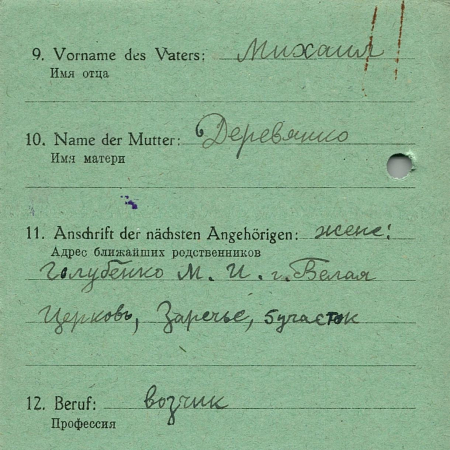 9. Vorname des Vaters: Михаил
Имя отца
10. Name der Mutter: Деревянко
Имя матери
11. Anschrift der nächsten Angehörigen: жене:
Адрес ближайших родственников
Голубенко М. И. г. Белая
Церковь, Заречье, 5 участок
12. Beruf: возчик
Профессия